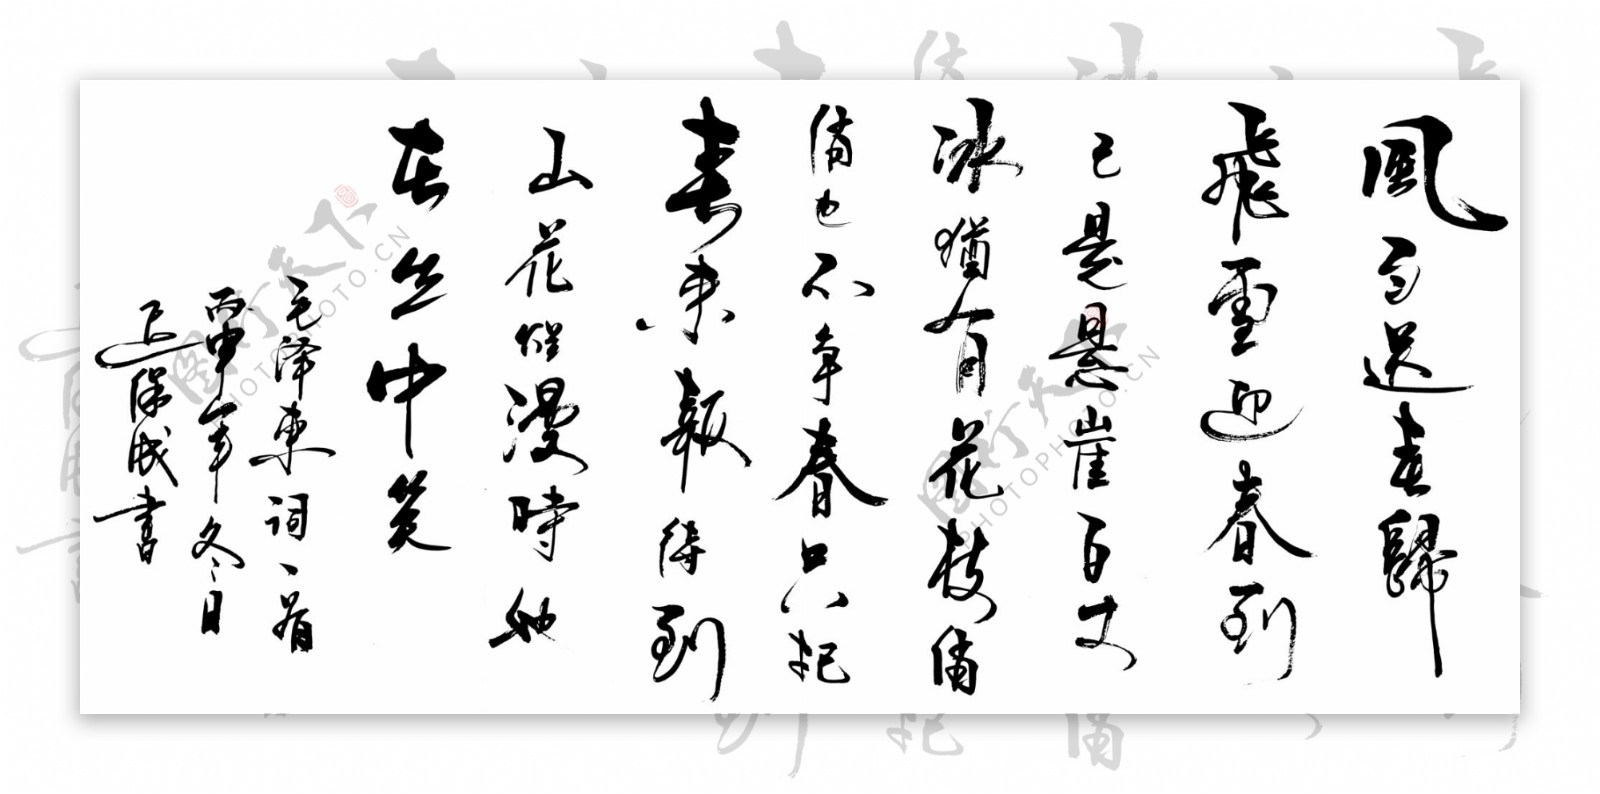 風雨送春歸
飛雪迎春到
已是悬崖百丈
冰猶有花枝俏
俏也不争春只把
春来報待到
山花爛漫時她
在丛中笑
毛泽東詞一首
丙申年冬日
保成書
图行天下 PHOTOPHOTO.CN
图行天下 PHOTOPHOTO.CN